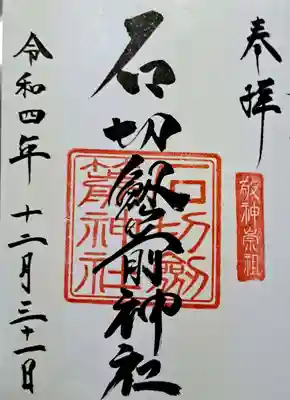 奉拝
敬神崇祖
石切劔箭神社
石切劔
箭神社
令和四年十二月三十一日